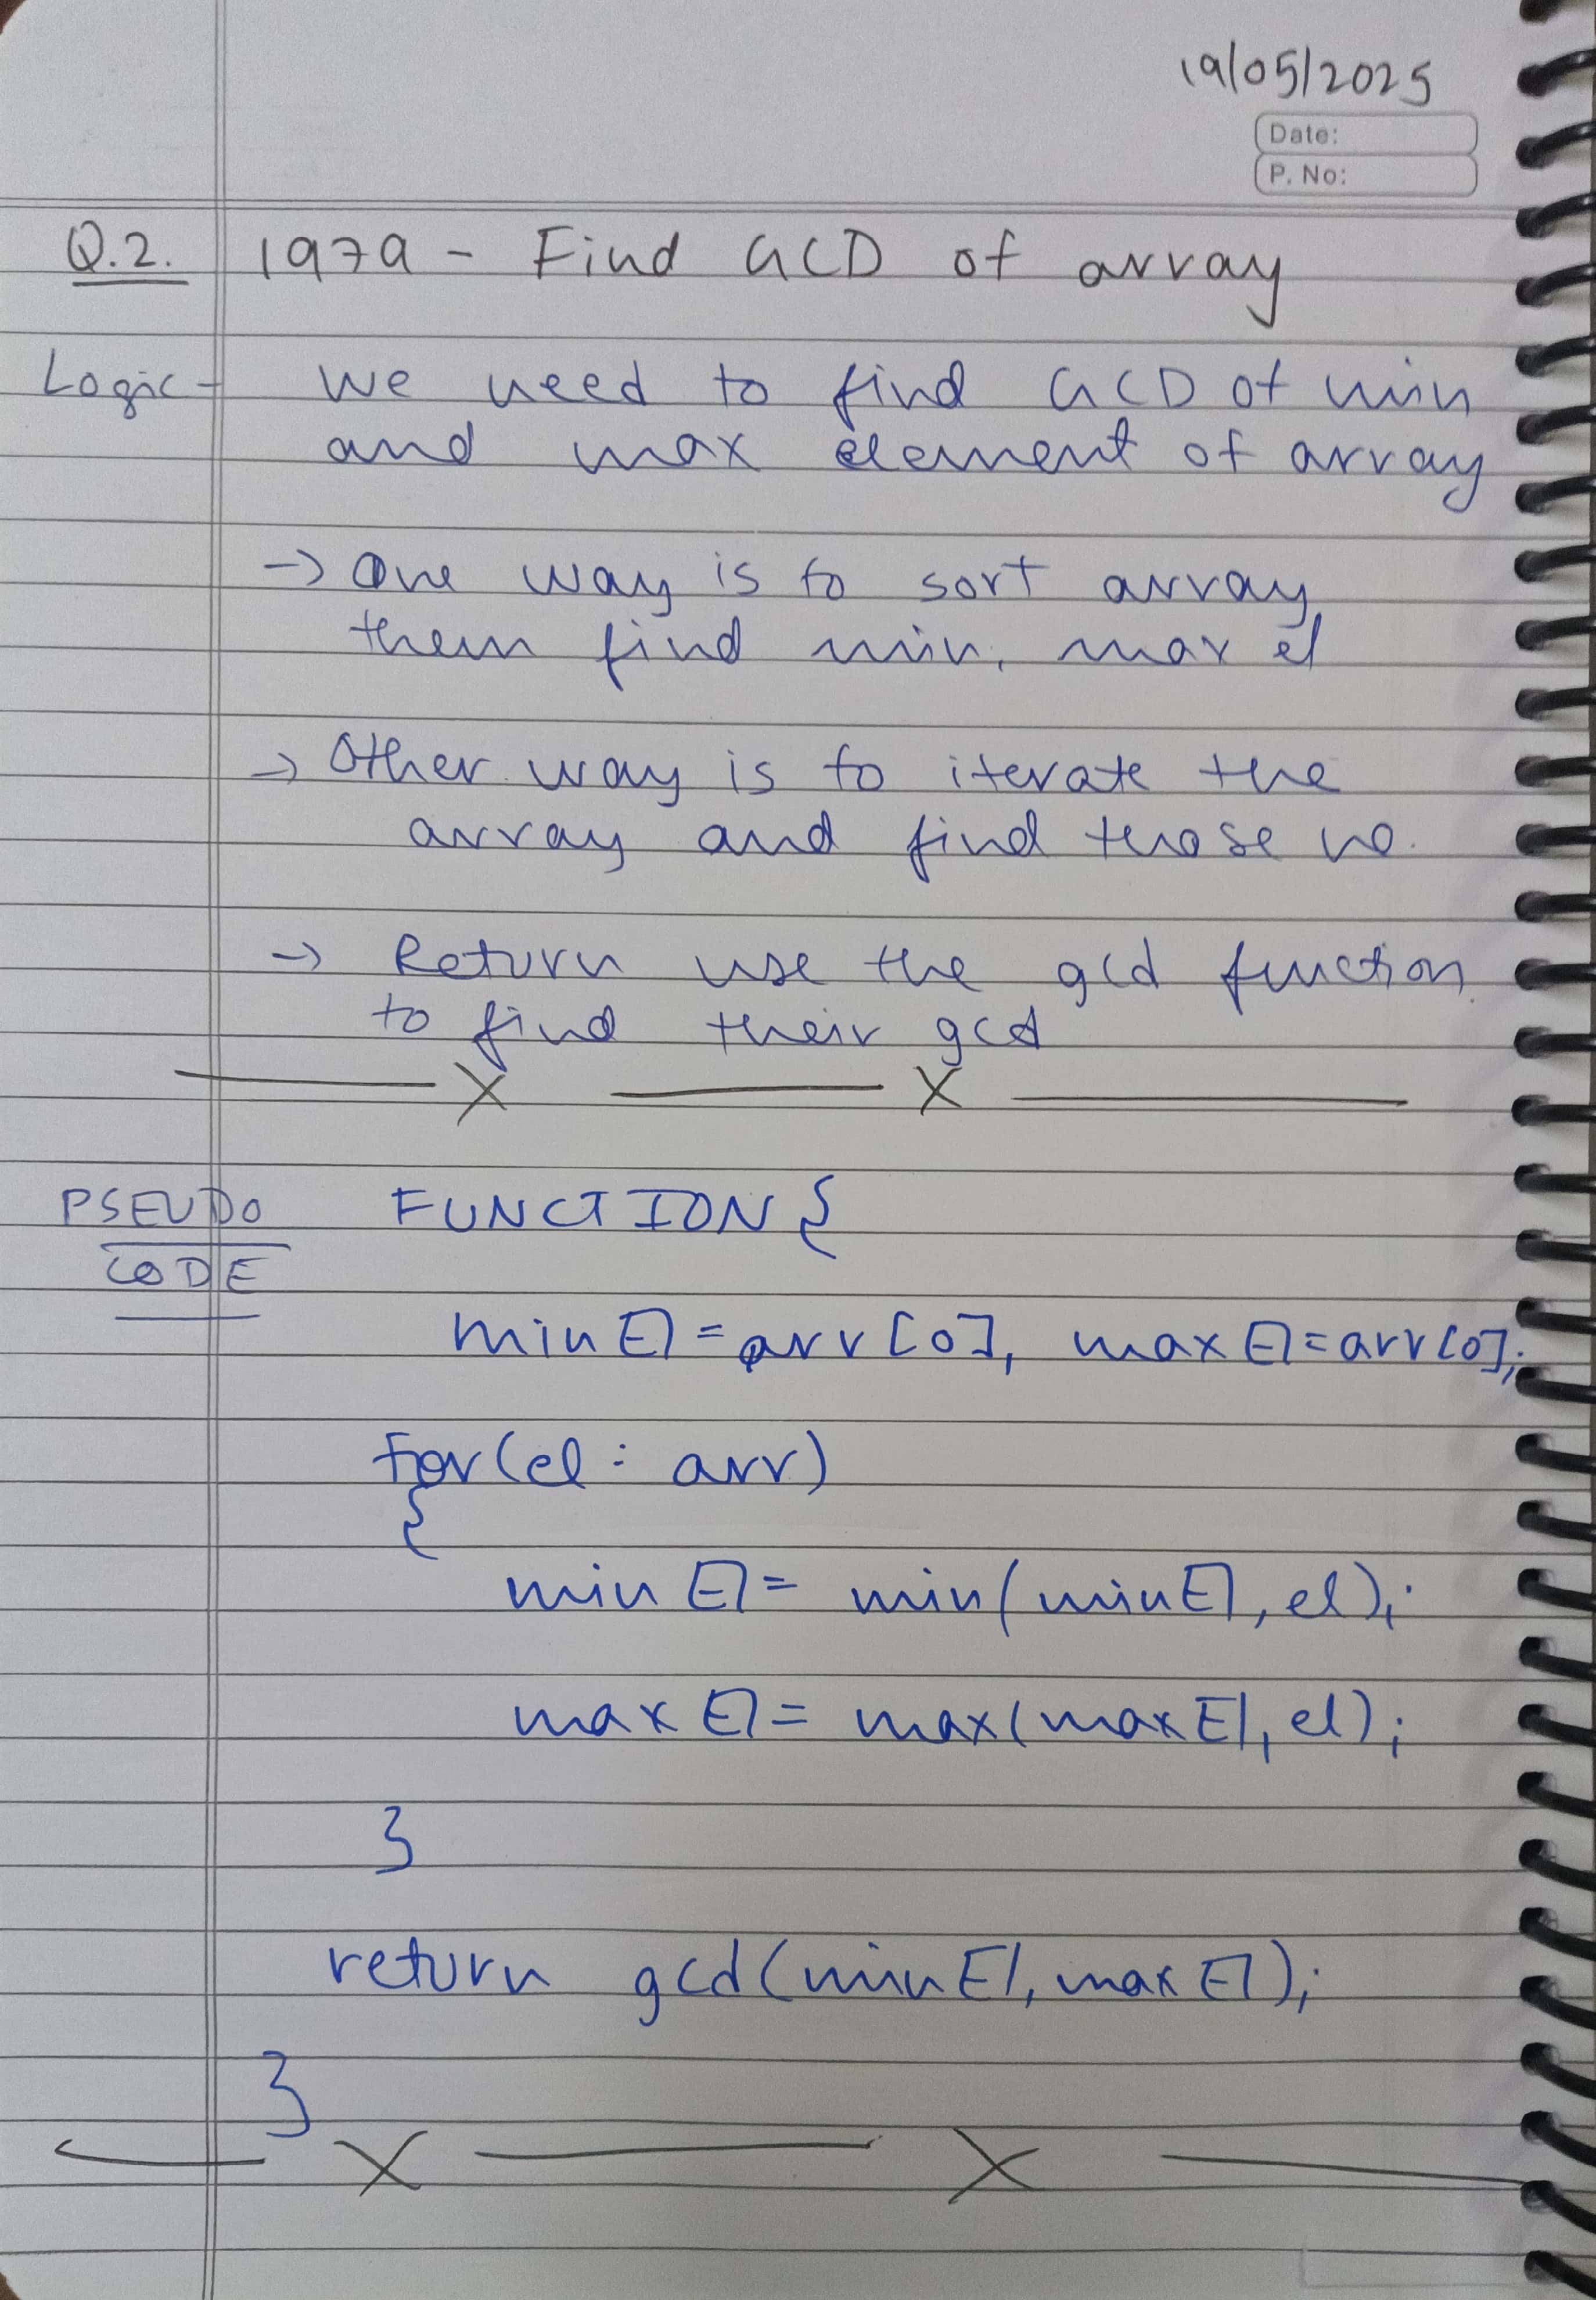 19/05/2025
Date:
P. No:
Q.2. 1979 - Find GCD of array
Logic - We need to find GCD of min
and max element of array
-> One way is to sort array
them find min, max el
-> Other way is to iterate the
array and find those no.
-> Return use the gcd function
to find their gcd
X X
PSEUDO FUNCTION {
CODE
minEl = arr[0], maxEl = arr[0];
for(el : arr)
{
minEl = min(minEl, el);
maxEl = max(maxEl, el);
}
return gcd(minEl, maxEl);
}
X X